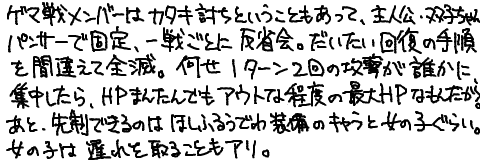 ゲマ戦メンバーはカタキ討ちということもあって、主人公・双子ちゃん
パンサーで固定、一戦ごとに反省会。だいたい回復の手順
を間違えて全滅。何せ1ターン2回の攻撃が誰かに
集中したら、HPまんたんでもアウトな程度の最大HPなもんだから。
あと、先制できるのはほしふるうでわ装備のキャラと女の子ぐらい。
女の子は遅れを取ることもアリ。